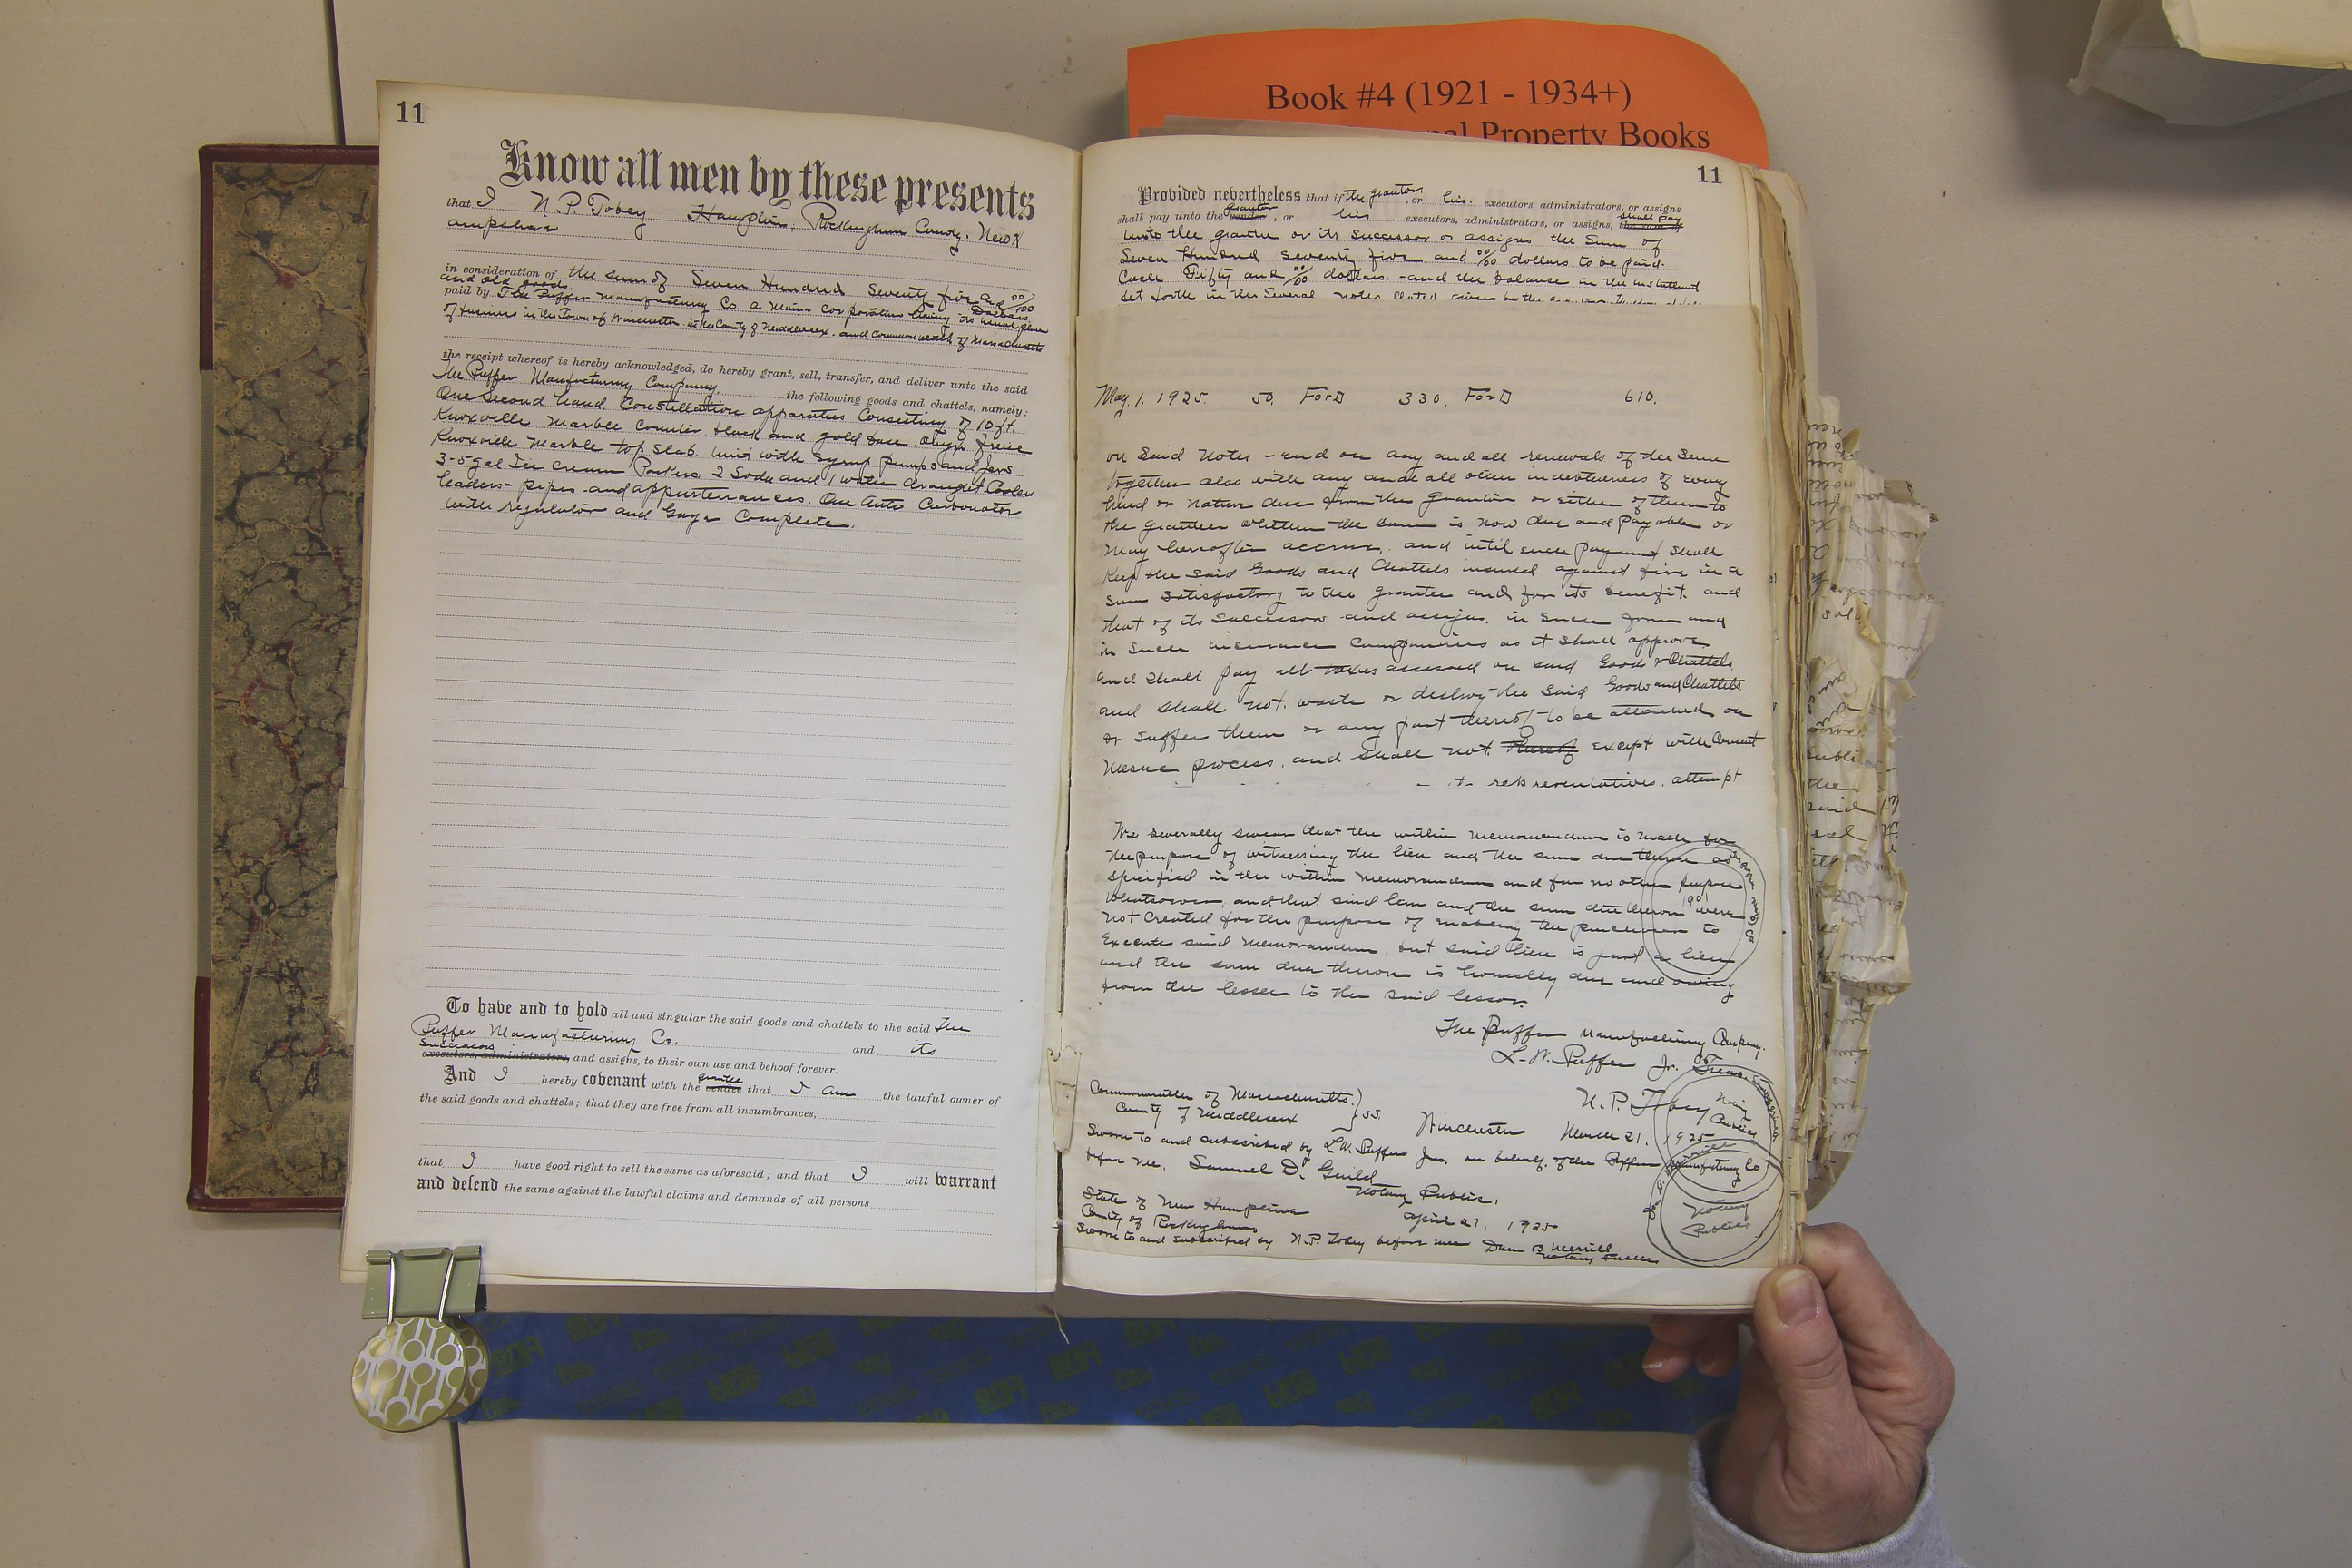 Book #4 (1921 - 1934+)
Property Books
11
Know all men by these presents
that I N.P. Tobey Hampton, Rockingham County, New H
ampshire
in consideration of the sum of Seven Hundred Seventy five and 00/100
and old goods Dollars
paid by The Puffer Manufacturing Co a Maine Corporation having its usual place
of business in the Town of Winchester in the County of Middlesex and Commonwealth of Massachusetts
the receipt whereof is hereby acknowledged, do hereby grant, sell, transfer, and deliver unto the said
The Puffer Manufacturing Company, the following goods and chattels, namely:
One Second hand Constellation apparatus Consisting of 10 ft.
Knoxville Marble Counter black and gold base. Onyx
Knoxville Marble top slab. Unit with syrup pumps and Jars
3-5 gal Ice cream Packers 2 Soda and 1 water draught Coolers
leaders - pipes - and appurtenances. One Auto Carbonator
with regulator and Gage Complete.
To have and to hold all and singular the said goods and chattels to the said The
Puffer Manufacturing Co. and its
Successors
executors, administrators, and assigns, to their own use and behoof forever.
And I hereby covenant with the grantee vendee that I am the lawful owner of
the said goods and chattels; that they are free from all incumbrances,
that I have good right to sell the same as aforesaid; and that I will warrant
and defend the same against the lawful claims and demands of all persons
11
Provided nevertheless that if the grantor, or his executors, administrators, or assigns
shall pay unto the grantor vendee, or his executors, administrators, or assigns, shall pay the sum of
unto the grantee or its Successor or assigns the Sum of
Seven Hundred seventy five and 00/100 dollars to be paid.
Cash Fifty and 00/100 dollars - and the balance in the instalment
set forth in the Several notes dated given by the
May. 1. 1925. 50. ForD 330. ForD 610.
on Said Notes - and on any and all renewals of the Same
together also with any and all other indebtedness of every
kind or nature due from the grantor or either of them to
the grantee whether the same is now due and payable or
may hereafter accrue, and until such payment shall
Keep the said Goods and Chattels insured against fire in a
sum satisfactory to the grantee and for its benefit, and
that of its successor and assigns, in such form and
in such insurance Companies as it shall approve
and shall pay all taxes assessed on said Goods & Chattels
and shall not waste or destroy the said Goods and Chattels
or suffer them or any part thereof to be attached on
Mesne process, and shall not thereof except with Consent
representatives, attempt
We severally swear that the within memorandum is made for
the purpose of witnessing the lien and the sum due thereon as
specified in the within memorandum and for no other purpose
whatsoever, and that said lien and the sum due thereon were
not created for the purpose of enabling the purchaser to
Execute said memorandum but said lien is just a lien
and the sum due thereon is honestly due and owing
from the lessee to the said lessor.
The Puffer Manufacturing Company.
L. W. Puffer Jr. Treas.
N. P. Tobey
Commonwealth of Massachusetts } ss.
County of Middlesex
Winchester March 21, 1925
Sworn to and subscribed by L.W. Puffer Jr. on behalf of the Puffer Manufacturing Co
before me. Samuel D. Guild
Notary Public.
State of New Hampshire April 27, 1925
County of Rockingham
Sworn to and subscribed by N.P. Tobey before me Dean B Merrill
Notary Public
Notary
Public